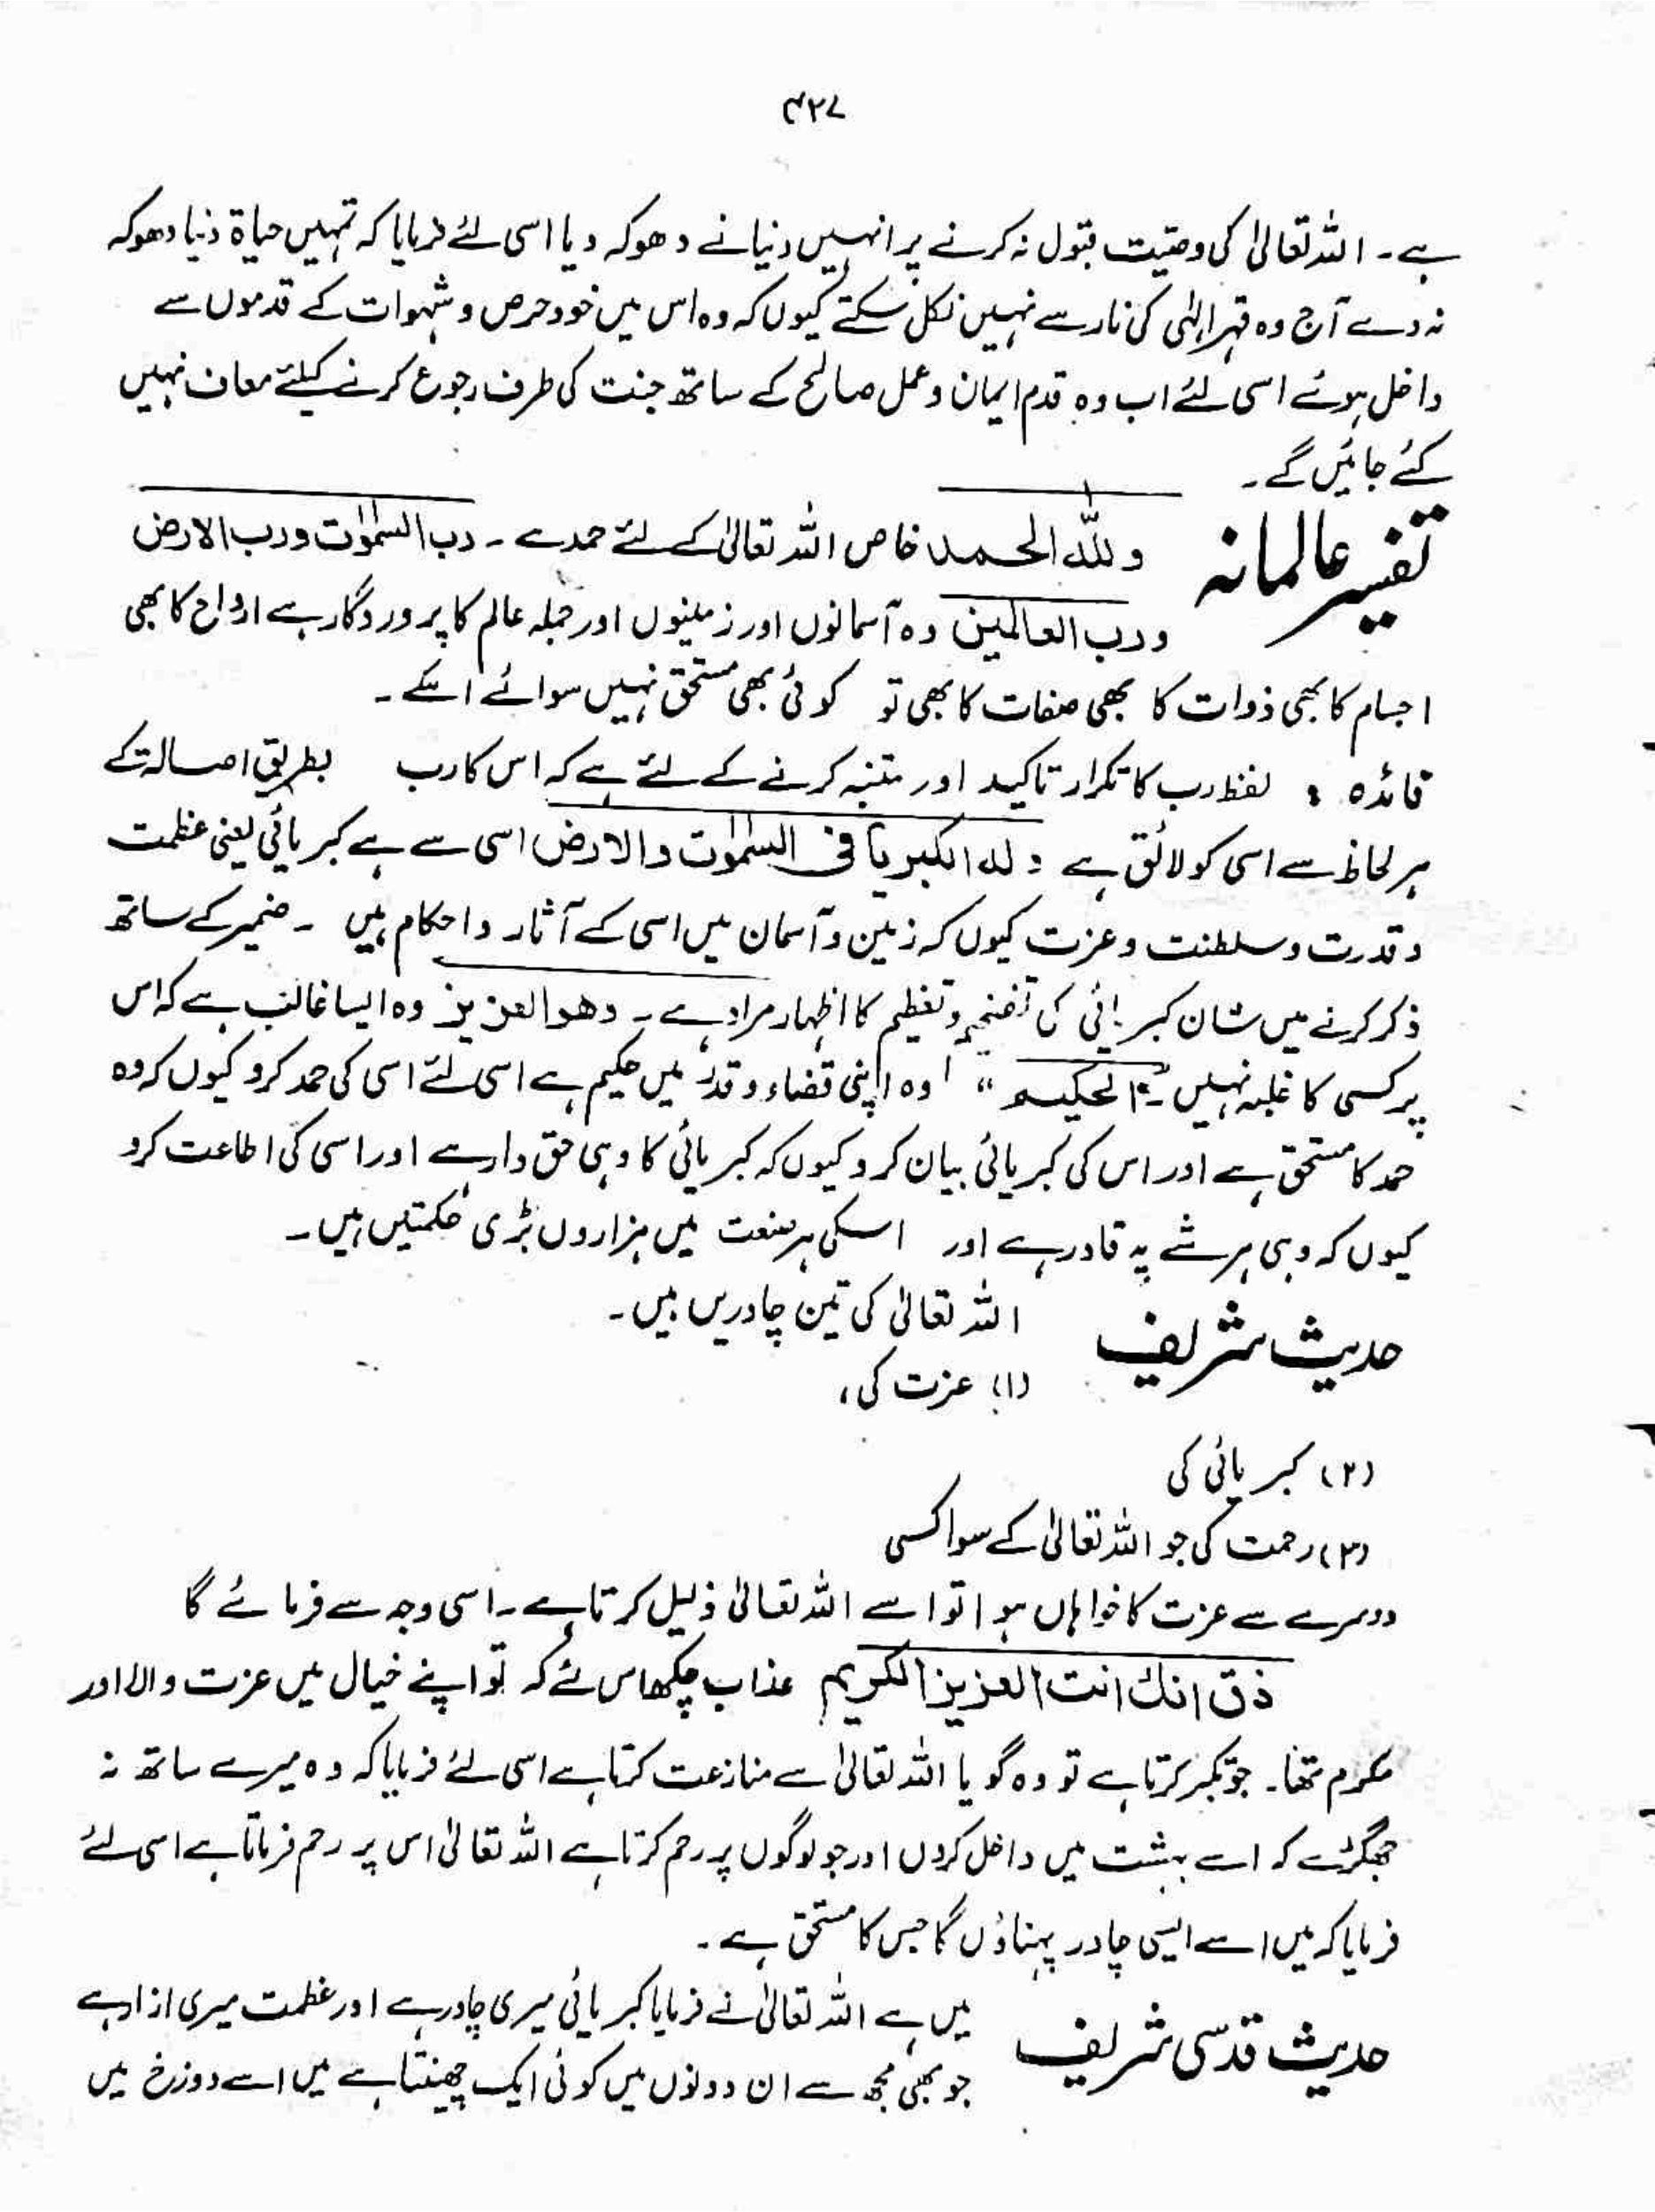 ۴۲۷
ہے۔ اللہ تعالیٰ کی وصیت قبول نہ کرنے پر انہیں دنیا نے دھوکہ دیا اسی لئے فرمایا کہ تمہیں حیاۃ دنیا دھوکہ
نہ دے آج وہ قہر الٰہی کی نار سے نہیں نکل سکتے کیوں کہ وہ اس میں خود حرص و شہوات کے قدموں سے
داخل ہوئے اسی لئے اب وہ قدم ایمان و عمل صالح کے ساتھ جنت کی طرف رجوع کرنے کیلئے معاف نہیں
کئے جائیں گے۔
تفسیر عالمانہ وللّٰہ الحمد خاص اللہ تعالیٰ کے لئے حمد ہے۔ رب السمٰوٰت ورب الارض
ورب العالمین وہ آسمانوں اور زمینوں اور جملہ عالم کا پروردگار ہے ارواح کا بھی
اجسام کا بھی ذوات کا بھی صفات کا بھی تو کوئی بھی مستحق نہیں سوائے اسکے۔
فائدہ : لفظ رب کا تکرار تاکید اور متنبہ کرنے کے لئے ہے کہ اس کا رب بطریق اصالۃ کے
ہر لحاظ سے اسی کو لائق ہے ولہ الکبریآ فی السمٰوٰت والارض اسی سے ہے کبریائی یعنی عظمت
و قدرت و سلطنت و عزت کیوں کہ زمین و آسمان میں اسی کے آثار و احکام ہیں ۔ ضمیر کے ساتھ
ذکر کرنے میں شان کبریائی کی تفخیم و تعظیم کا اظہار مراد ہے ۔ وھو العزیز وہ ایسا غالب ہے کہ اس
پر کسی کا غلبہ نہیں ۔ الحکیم " وہ اپنی قضاء و قدر میں حکیم ہے اسی لئے اسی کی حمد کرو کیوں کہ وہ
حمد کا مستحق ہے اور اس کی کبریائی بیان کرو کیوں کہ کبریائی کا وہی حق دار ہے اور اسی کی اطاعت کرو
کیوں کہ وہی ہر شے پہ قادر ہے اور اسکی ہر صنعت میں ہزاروں بڑی حکمتیں ہیں۔
حدیث شریف اللہ تعالیٰ کی تین چادریں ہیں۔
(۱) عزت کی ،
(۲) کبریائی کی
(۳) رحمت کی جو اللہ تعالیٰ کے سوا کسی
دوسرے سے عزت کا خواہاں ہوا تو اسے اللہ تعالیٰ ذلیل کرتا ہے۔ اسی وجہ سے فرمائے گا
ذق انك انت العزیز الکریم عذاب چکھ اس لئے کہ تو اپنے خیال میں عزت والا اور
مکرم تھا۔ جو تکبر کرتا ہے تو وہ گویا اللہ تعالیٰ سے منازعت کرتا ہے اسی لئے فرمایا کہ وہ میرے ساتھ نہ
جھگڑے کہ اسے بہشت میں داخل کروں اور جو لوگوں پر رحم کرتا ہے اللہ تعالیٰ اس پر رحم فرماتا ہے اسی لئے
فرمایا کہ میں اسے ایسی چادر پہناؤں گا جس کا مستحق ہے۔
حدیث قدسی شریف میں ہے اللہ تعالیٰ نے فرمایا کبریائی میری چادر ہے اور عظمت میری ازار ہے
جو بھی مجھ سے ان دونوں میں کوئی ایک چھینتا ہے میں اسے دوزخ میں